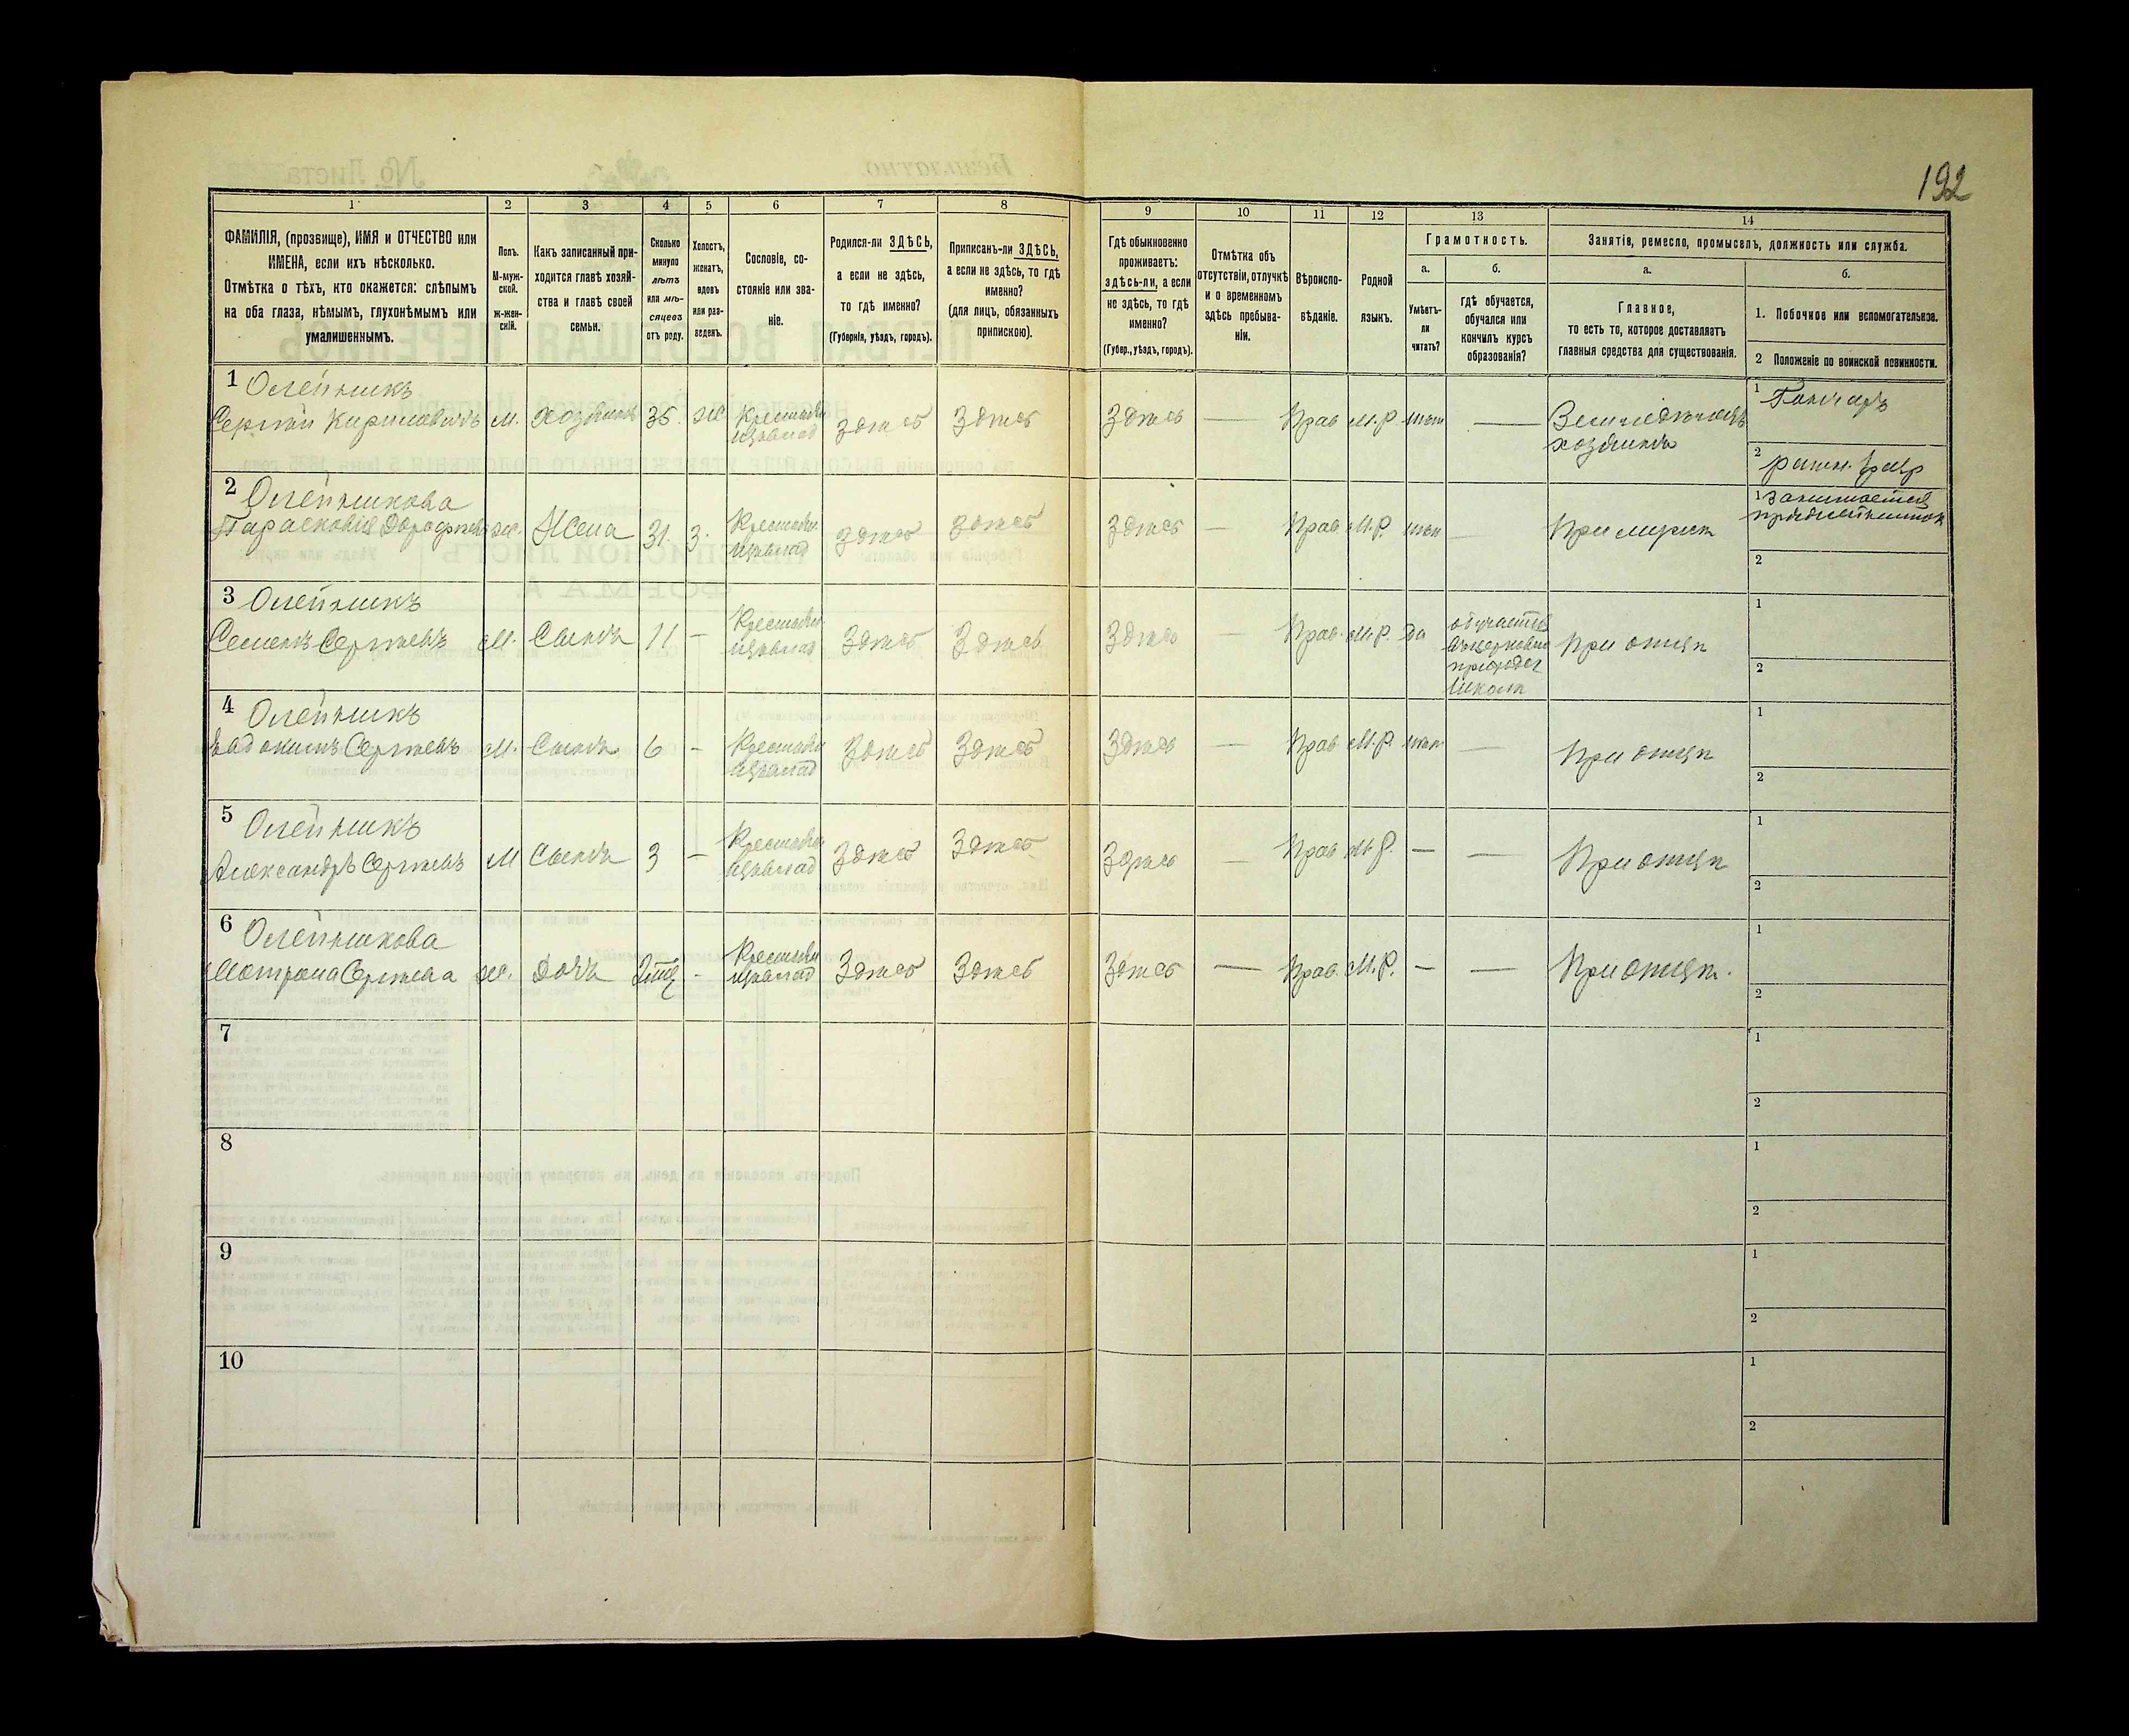 192
1 2 3 4 5 6 7 8 9 10 11 12 13 14
ФАМИЛІЯ, (прозвище), ИМЯ и ОТЧЕСТВО или
ИМЕНА, если ихъ нѣсколько.
Отмѣтка о тѣхъ, кто окажется: слѣпымъ
на оба глаза, нѣмымъ, глухонѣмымъ или
умалишеннымъ.
Полъ.
М-муж-
ской.
Ж-жен-
скій.
Какъ записанный при-
ходится главѣ хозяй-
ства и главѣ своей
семьи.
Сколько
минуло
лѣтъ
или мѣ-
сяцевъ
отъ роду.
Холостъ,
женатъ,
вдовъ
или раз-
веденъ.
Сословіе, со-
стояніе или зва-
ніе.
Родился-ли ЗДѢСЬ,
а если не здѣсь,
то гдѣ именно?
(Губернія, уѣздъ, городъ).
Приписанъ-ли ЗДѢСЬ,
а если не здѣсь, то гдѣ
именно?
(для лицъ, обязанныхъ
припискою).
Гдѣ обыкновенно
проживаетъ:
здѣсь-ли, а если
не здѣсь, то гдѣ
именно?
(Губер., уѣздъ, городъ).
Отмѣтка объ
отсутствіи, отлучкѣ
и о временномъ
здѣсь пребыва-
ніи.
Вѣроиспо-
вѣданіе.
Родной
языкъ.
Грамотность.
а.
Умѣетъ-
ли
читать?
б.
гдѣ обучается,
обучался или
кончилъ курсъ
образованія?
Занятіе, ремесло, промыселъ, должность или служба.
а.
Главное,
то есть то, которое доставляетъ
главныя средства для существованія.
б.
1. Побочное или вспомогательное.
2 Положеніе по воинской повинности.
1 Олейникъ
Сергѣй Кириловичъ м. хозяинъ 35 ж Крестьян. здѣсь Здѣсь Здѣсь — Прав М.Р нѣт — Земледѣлецъ хозяинъ
1 Гончаръ
2 ратн.
2 Олейникова
Парасковія Дорофѣев ж. Жена 31. З. Крестьян. здѣсь здѣсь здѣсь — Прав М.Р. нѣт — При мужѣ
1 занимается
2
3 Олейникъ
Семенъ Сергѣевъ М. Сынъ 11 — Крестьян. Здѣсь Здѣсь Здѣсь — Прав. М.Р. да обучается
школѣ
при отцѣ
1
2
4 Олейникъ
Евдокимъ Сергѣевъ М. Сынъ 6 — Крестьян Здѣсь Здѣсь Здѣсь — Прав М.Р. нѣт — При отцѣ
1
2
5 Олейникъ
Александръ Сергѣевъ М Сынъ 3 — Крестьян Здѣсь Здѣсь Здѣсь — Прав М.Р. — — При отцѣ
1
2
6 Олейникова
Мотрона Сергѣева ж. Дочь - Крестьян Здѣсь Здѣсь Здѣсь — Прав. М.Р. — — При отцѣ.
1
2
7
1
2
8
1
2
9
1
2
10
1
2